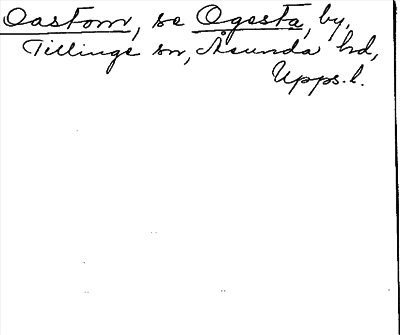 Oastom, se Ögesta, by,
Tillinge sn, Åsunda hd,
Upps. l.